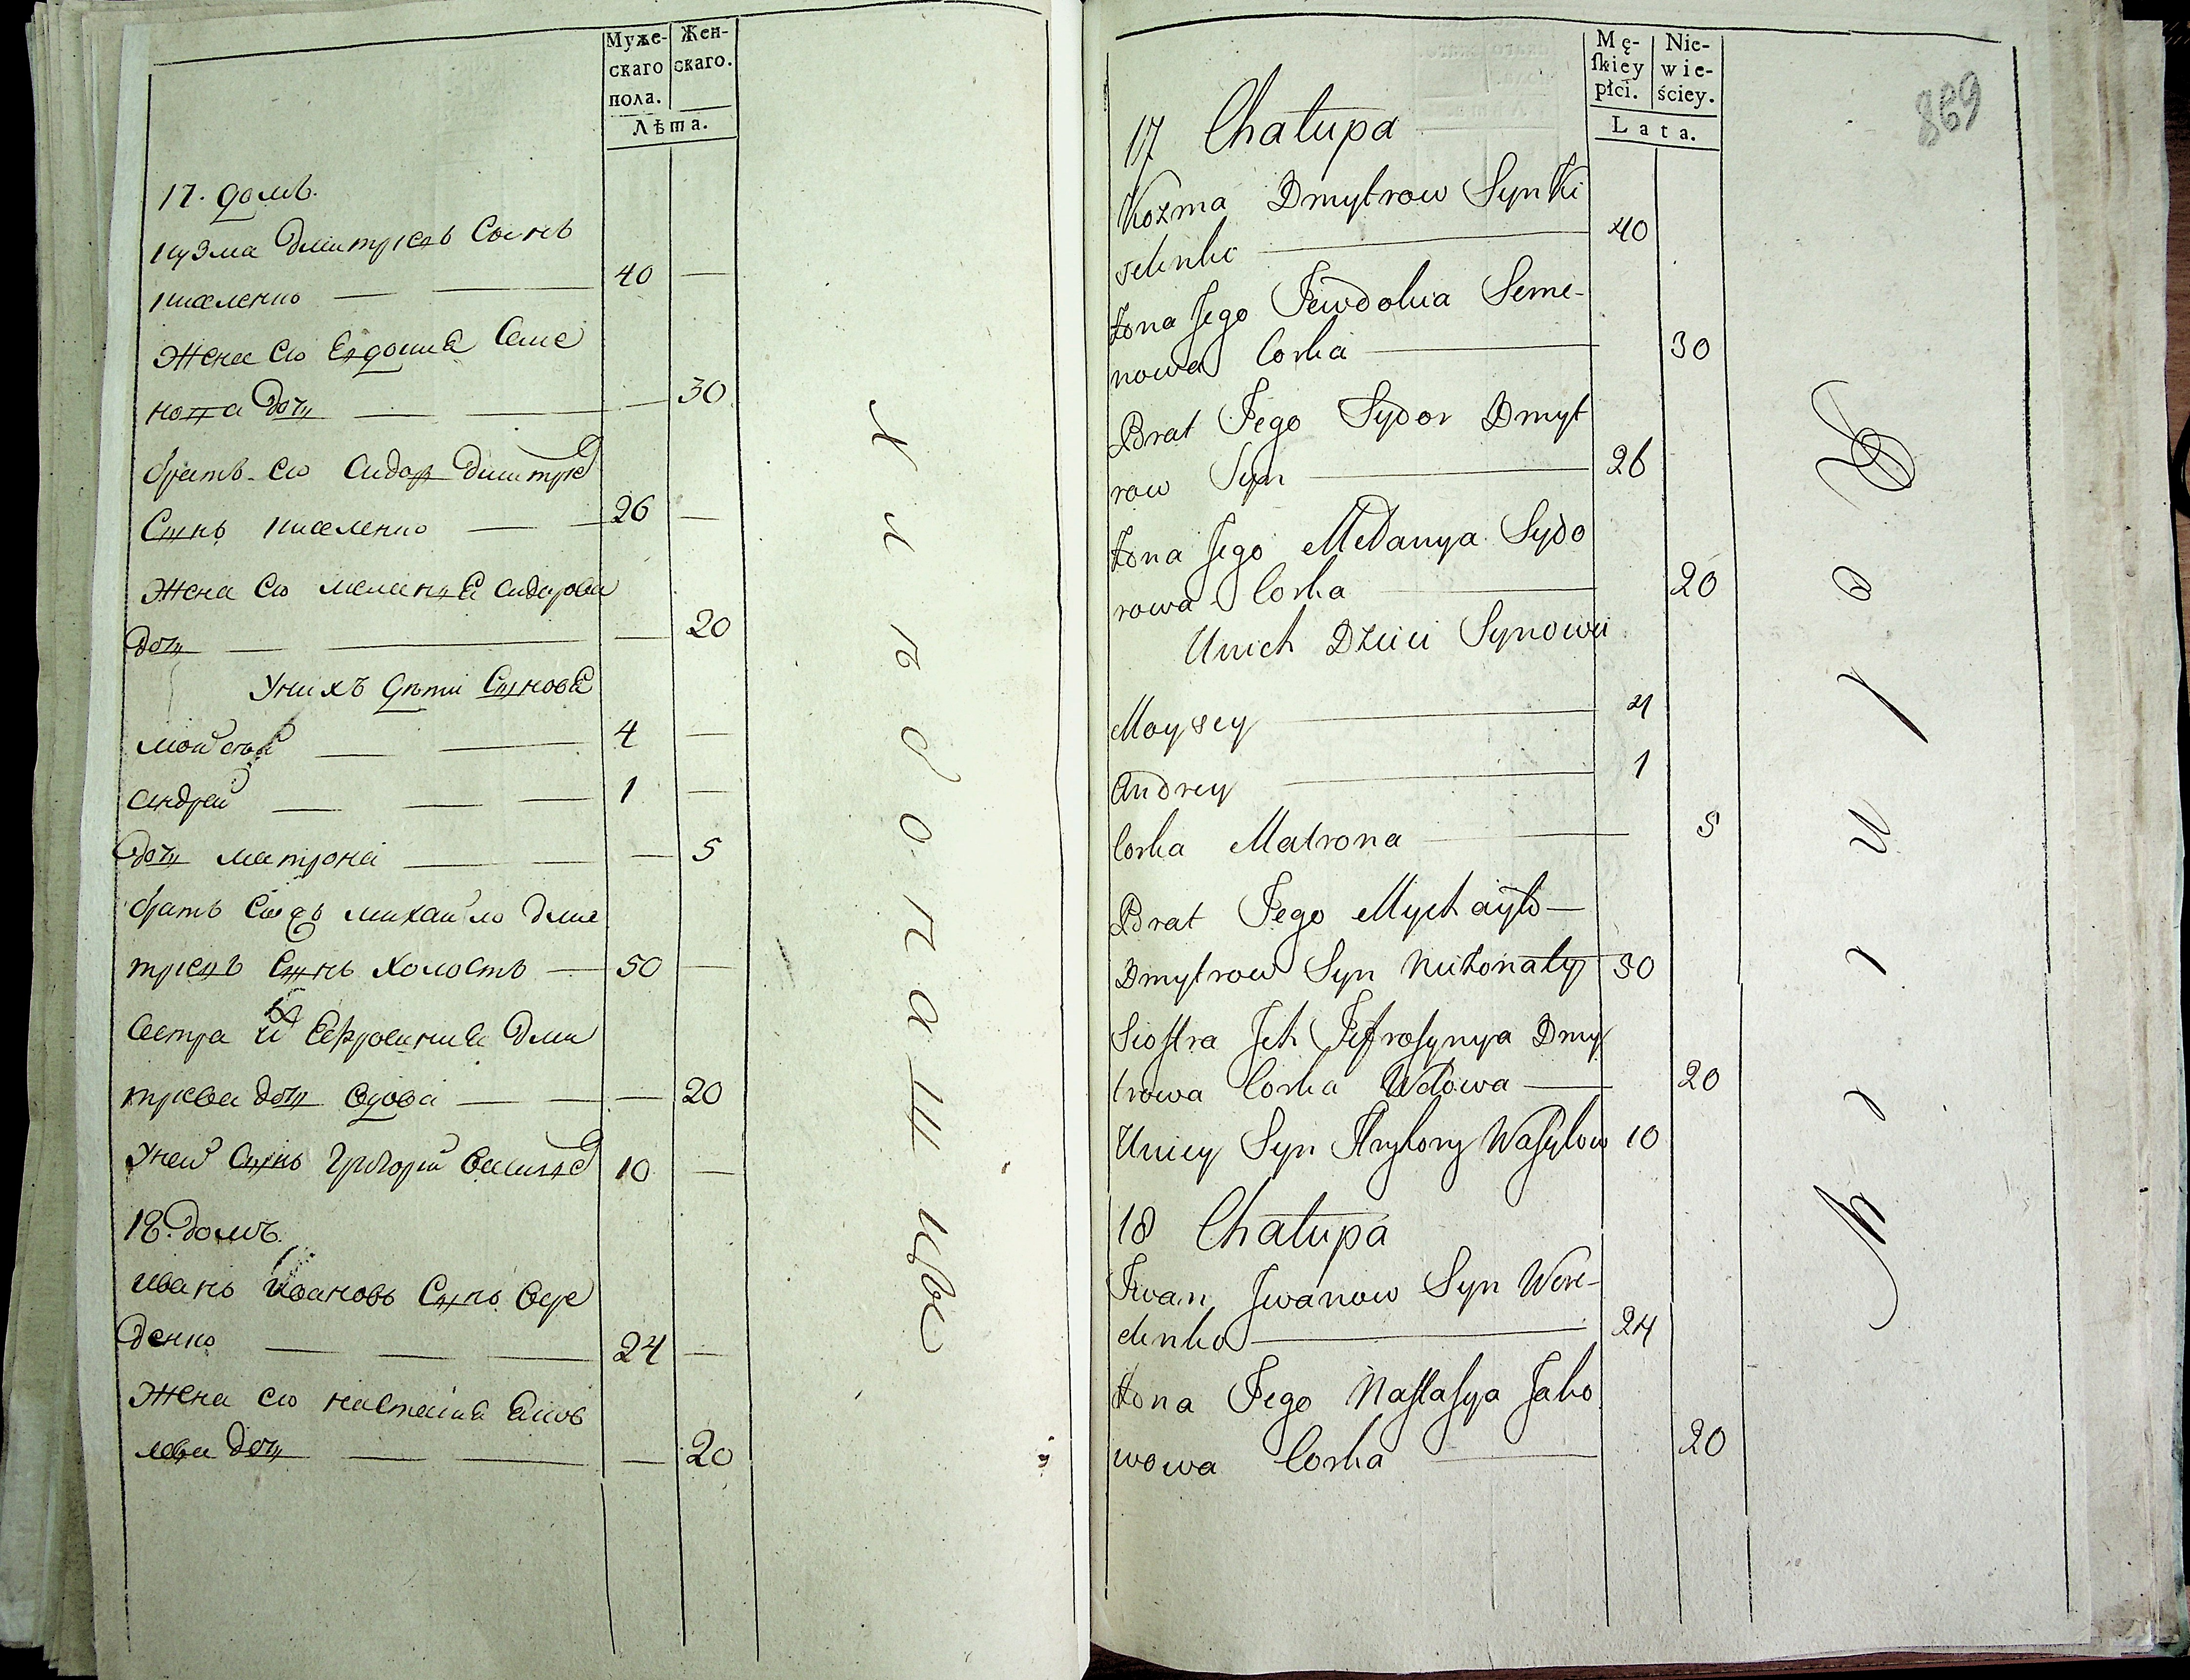 Муже-
скаго
пола.
Жен-
скаго.
Лѣта.
17. домъ.
кузма дмитріевъ Сынъ
киселенко 40
жена его Евдокия Семе
нова дочь 30
братъ его Сидор дмитрие
Сынъ киселенко 26
жена его мелания сидорова
дочь 20
У нихъ дѣти Сыновя
мойсей 4
андрей 1
дочь матрона 5
братъ михайло дми
триевъ Сынъ холостъ 50
Сестра их Ефросиния дми
триева дочь вдова 20
У ней Сынъ григорий василие 10
18. домъ.
иванъ ивановъ Сынъ вере
денко 24
жена его настасия яков
лева дочь 20
869
Mę-
skiey
płci.
Nie-
wie-
ściey.
Lata.
17 Chałupa
Kozma Dmytrow Syn Ki
selenko 40
żona Jego Jewdokia Seme-
nowa Corka 30
Brat Jego Sydor Dmyt
row Syn 26
żona Jego Mełanya Sydo
rowa Corka 20
Unich Dzieci Synowei
Moysey 4
Andrey 1
Corka Matrona 5
Brat Jego Mychayło
Dmytrow Syn Nieżonaty 30
Siostra Jch Jefrosynya Dmy
trowa Corka Wdowa 20
Uniey Syn Hryhory Wasylow 10
18 Chałupa
Jwan Jwanow Syn Were-
denko 24
żona Jego Nastasya Jako
wowa Corka 20